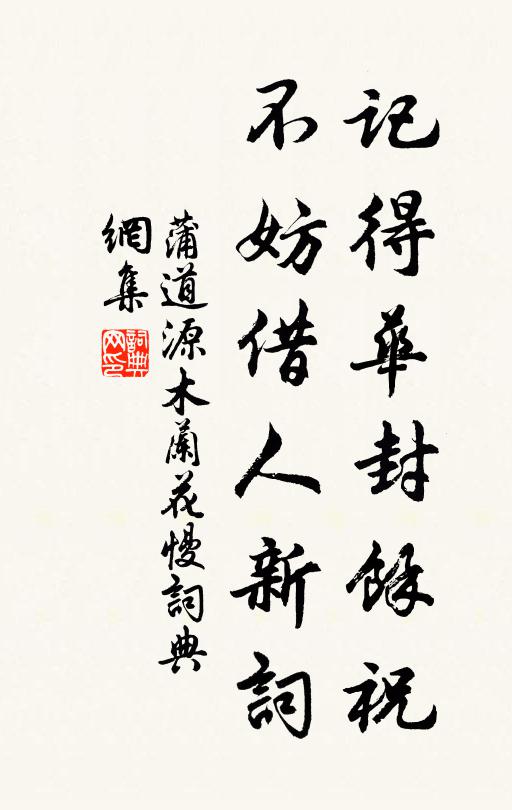 記得華封餘祝
不妨借人新詞
蒲道源木蘭花慢詞典
網集
詞典网印